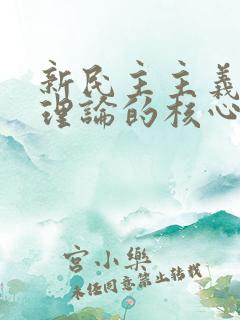 新民主主義
理論的核心
宮小樂
未經同意禁止轉載